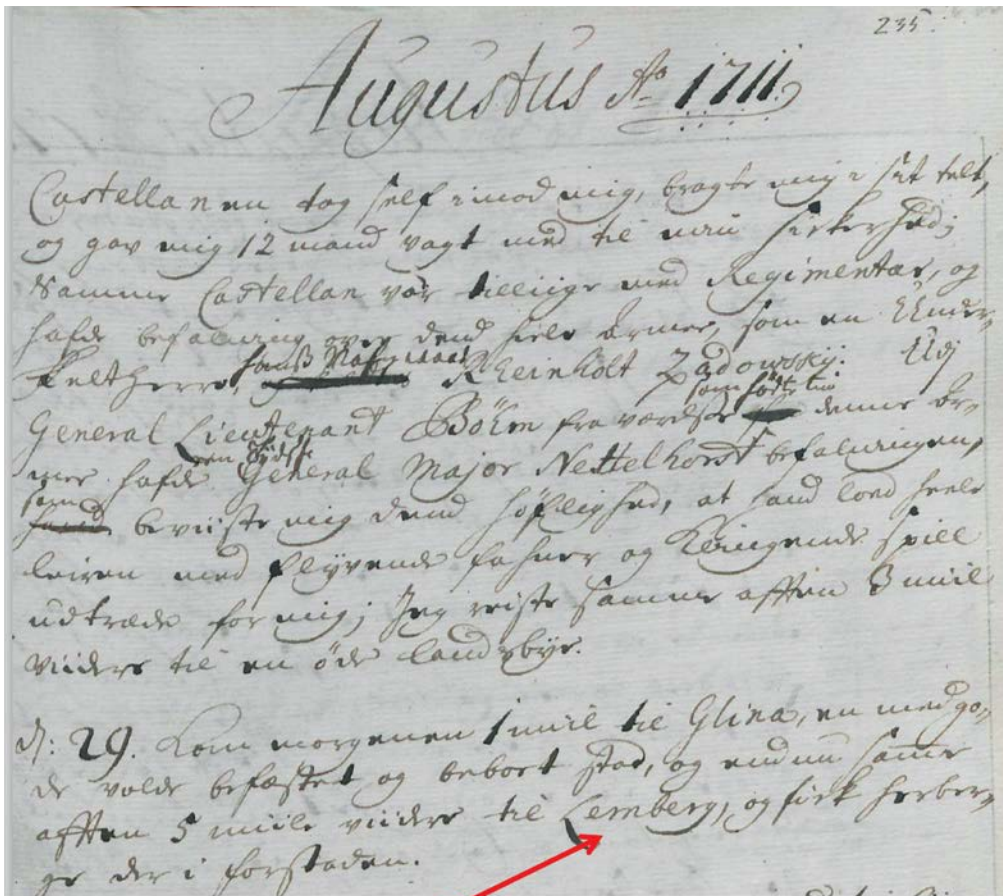 235.
Augustus Ao 1711.
Castellanen tog self imod mig, bragte mig i sit telt,
og gav mig 12 mand vagt med til min sickerhed;
Samme Castellan var tilliige med Regimentar, og
hafde befalning over dend hiele Armee, som en Under
Feltherre, hans Nafn var Rheinholt Zadowskÿ. Udj
General Lieutenant Böhm fra værelse denne Ar-
mee hafde General Major Nettelhorst befalningen,
som beviiste mig dend höflighed, at hand loed heele
leiren med flÿvende fahner og klingende spill
udtræde for mig; Jeg reiste samme afften 3 miil
viidere til en öde landsbye.
d: 29. Kom morgenen 1 miil til Glina, en med go-
de volde befæstet og beboet stad, og endnu samme
afften 5 miile viidere til Lemberg, og fick herber-
ge der i forstaden.